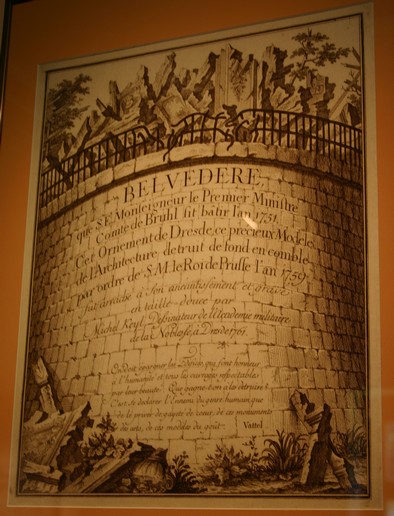 BELVEDERE,
que S. E. Monseigneur le Premier Ministre
Comte de Bruhl fit bâtir l'an 1751.
Cet Ornement de Dresde, ce précieux Modele
de l'Architecture, detruit de fond en comble
par ordre de S. M. le Roi de Prusse l'an 1759
fut arraché à son anéantissement et gravé
en taille-douce par
Michel Keyl, Dessinateur de l'Academie militaire
de la Noblesse, à Dresde 1761.
On doit épargner les Edifices, qui font honneur
à l'humanité et tous les ouvrages respectables
par leur beauté. Que gagne-t-on à les détruire?
C'est se déclarer l'Ennemi du genre humain, que
de le priver de gayeté de coeur, de ces monuments
des arts, de ces modèles du goût.
Vattel